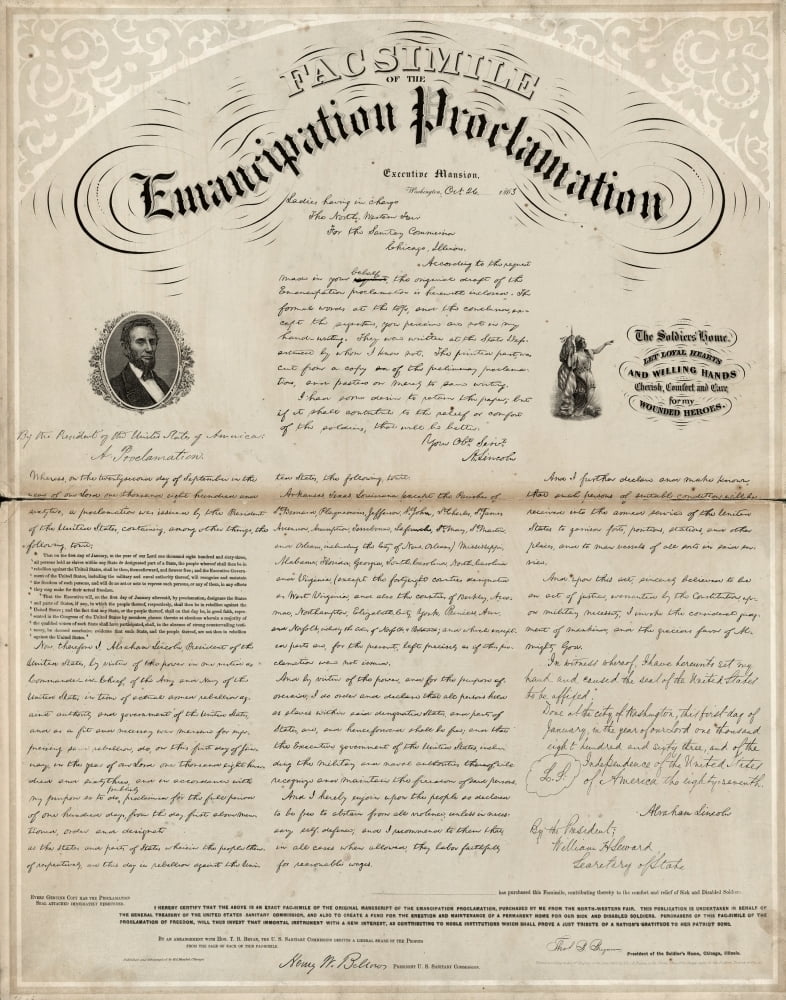 FAC SIMILE
OF THE
Emancipation Proclamation
Executive Mansion,
Washington, Oct 26 1863
Ladies having in charge
The North Western Fair
For the Sanitary Commission
Chicago, Illinois.
According to the request
made in your behalf, the original draft of the
Emancipation proclamation is herewith inclosed. The
formal words at the top, and the conclusion, ex-
cept the signature, you perceive are not in my
hand-writing. They were written at the State Dep-
artment by whom I know not. The printed part was
cut from a copy of the preliminary proclama-
tion, and pasted on merely to save writing.
I had some desire to retain the paper; but
if it shall contribute to the relief or comfort
of the soldiers, that will be better.
Your Obt. Servt.
A. Lincoln
The Soldiers' Home.
LET LOYAL HEARTS
AND WILLING HANDS
Cherish, Comfort and Care,
for my
WOUNDED HEROES.
By the President of the United States of America:
A Proclamation.
Whereas, on the twenty-second day of September in the
year of our Lord one thousand eight hundred and
sixty two, a proclamation was issued by the President
of the United States, containing, among other things, the
following, towit:
" That on the first day of January, in the year of our Lord one thousand eight hundred and sixty-three,
' all persons held as slaves within any State or designated part of a State, the people whereof shall then be in
' rebellion against the United States, shall be then, thenceforward, and forever free; and the Executive Govern-
' ment of the United States, including the military and naval authority thereof, will recognize and maintain
' the freedom of such persons, and will do no act or acts to repress such persons, or any of them, in any efforts
' they may make for their actual freedom.
" That the Executive will, on the first day of January aforesaid, by proclamation, designate the States
' and parts of States, if any, in which the people thereof, respectively, shall then be in rebellion against the
' United States; and the fact that any State, or the people thereof, shall on that day be, in good faith, repre-
' sented in the Congress of the United States by members chosen thereto at elections wherein a majority of
' the qualified voters of such State shall have participated, shall, in the absence of strong countervailing testi-
' mony, be deemed conclusive evidence that such State, and the people thereof, are not then in rebellion
' against the United States."
Now, therefore I, Abraham Lincoln, President of the
United States, by virtue of the power in me vested as
Commander-in-Chief, of the Army and Navy of the
United States in time of actual armed rebellion ag-
ainst authority and government of the United States,
and as a fit and necessary war measure for sup-
pressing said rebellion, do, on this first day of Jan-
uary, in the year of our Lord one thousand eight hun-
dred and sixty three, and in accordance with
my purpose so to do, publicly proclaimed for the full period
of one hundred days, from the day first above men-
tioned, order and designate
as the States and parts of States wherein the people there-
of respectively, are this day in rebellion against the Uni-
ted States, the following, towit:
Arkansas, Texas, Louisiana, except the Parishes of
St. Bernard, Plaquemines, Jefferson, St. John, St. Charles, St. James
Ascension, Assumption, Terrebonne, Lafourche, St. Mary, St. Martin,
and Orleans, including the City of New-Orleans) Mississippi,
Alabama, Florida, Georgia, South-Carolina, North-Carolina
and Virginia, (except the fortyeight counties designated
as West Virginia, and also the counties of Berkley, Acco-
mac, Northampton, Elizabeth-City, York, Princess Ann,
and Norfolk, including the cities of Norfolk & Portsmouth; and which except-
ed parts are, for the present, left precisely as if this pro-
clamation were not issued.
And by virtue of the power, and for the purpose af-
oresaid, I do order and declare that all persons held
as slaves within said designated States, and parts of
States, are, and henceforward shall be free; and that
the Executive government of the United States, inclu-
ding the military and naval authorities thereof, will
recognize and maintain the freedom of said persons.
And I hereby enjoin upon the people so declared
to be free to abstain from all violence, unless in neces-
sary self-defence; and I recommend to them that,
in all cases when allowed, they labor faithfully
for reasonable wages.
And I further declare and make known,
that such persons of suitable condition, will be
received into the armed service of the United
States to garrison forts, positions, stations, and other
places, and to man vessels of all sorts in said ser-
vice.
And upon this act, sincerely believed to be
an act of justice, warranted by the Constitution, up-
on military necessity, I invoke the considerate judg-
ment of mankind, and the gracious favor of Al-
mighty God.
In witness whereof, I have hereunto set my
hand and caused the seal of the United States
to be affixed.
Done at the city of Washington, this first day of
January, in the year of our Lord one thousand
eight hundred and sixty three, and of the
Independence of the United States
of America the eighty-seventh.
L.S.
Abraham Lincoln
By the President;
William H. Seward
Secretary of State
EVERY GENUINE COPY HAS THE PROCLAMATION
SEAL ATTACHED IMMEDIATELY HEREUNDER.
has purchased this Facsimile, contributing thereby to the comfort and relief of Sick and Disabled Soldiers.
I HEREBY CERTIFY THAT THE ABOVE IS AN EXACT FAC-SIMILE OF THE ORIGINAL MANUSCRIPT OF THE EMANCIPATION PROCLAMATION, PURCHASED BY ME FROM THE NORTH-WESTERN FAIR. THIS PUBLICATION IS UNDERTAKEN IN BEHALF OF
THE GENERAL TREASURY OF THE UNITED STATES SANITARY COMMISSION, AND ALSO TO CREATE A FUND FOR THE ERECTION AND MAINTENANCE OF A PERMANENT HOME FOR OUR SICK AND DISABLED SOLDIERS. PURCHASERS OF THIS FAC-SIMILE OF THE
PROCLAMATION OF FREEDOM, WILL THUS INVEST THAT IMMORTAL INSTRUMENT WITH A NEW INTEREST, AS CONTRIBUTING TO NOBLE INSTITUTIONS WHICH SHALL PROVE A JUST TRIBUTE OF A NATION'S GRATITUDE TO HER PATRIOT SONS.
BY AN ARRANGEMENT WITH HON. T. B. BRYAN, THE U. S. SANITARY COMMISSION DERIVES A LIBERAL SHARE OF THE PROFITS
FROM THE SALE OF EACH OF THIS FACSIMILE.
Thos. B. Bryan
President of the Soldier's Home, Chicago, Illinois.
Henry W. Bellows PRESIDENT U. S. SANITARY COMMISSION.